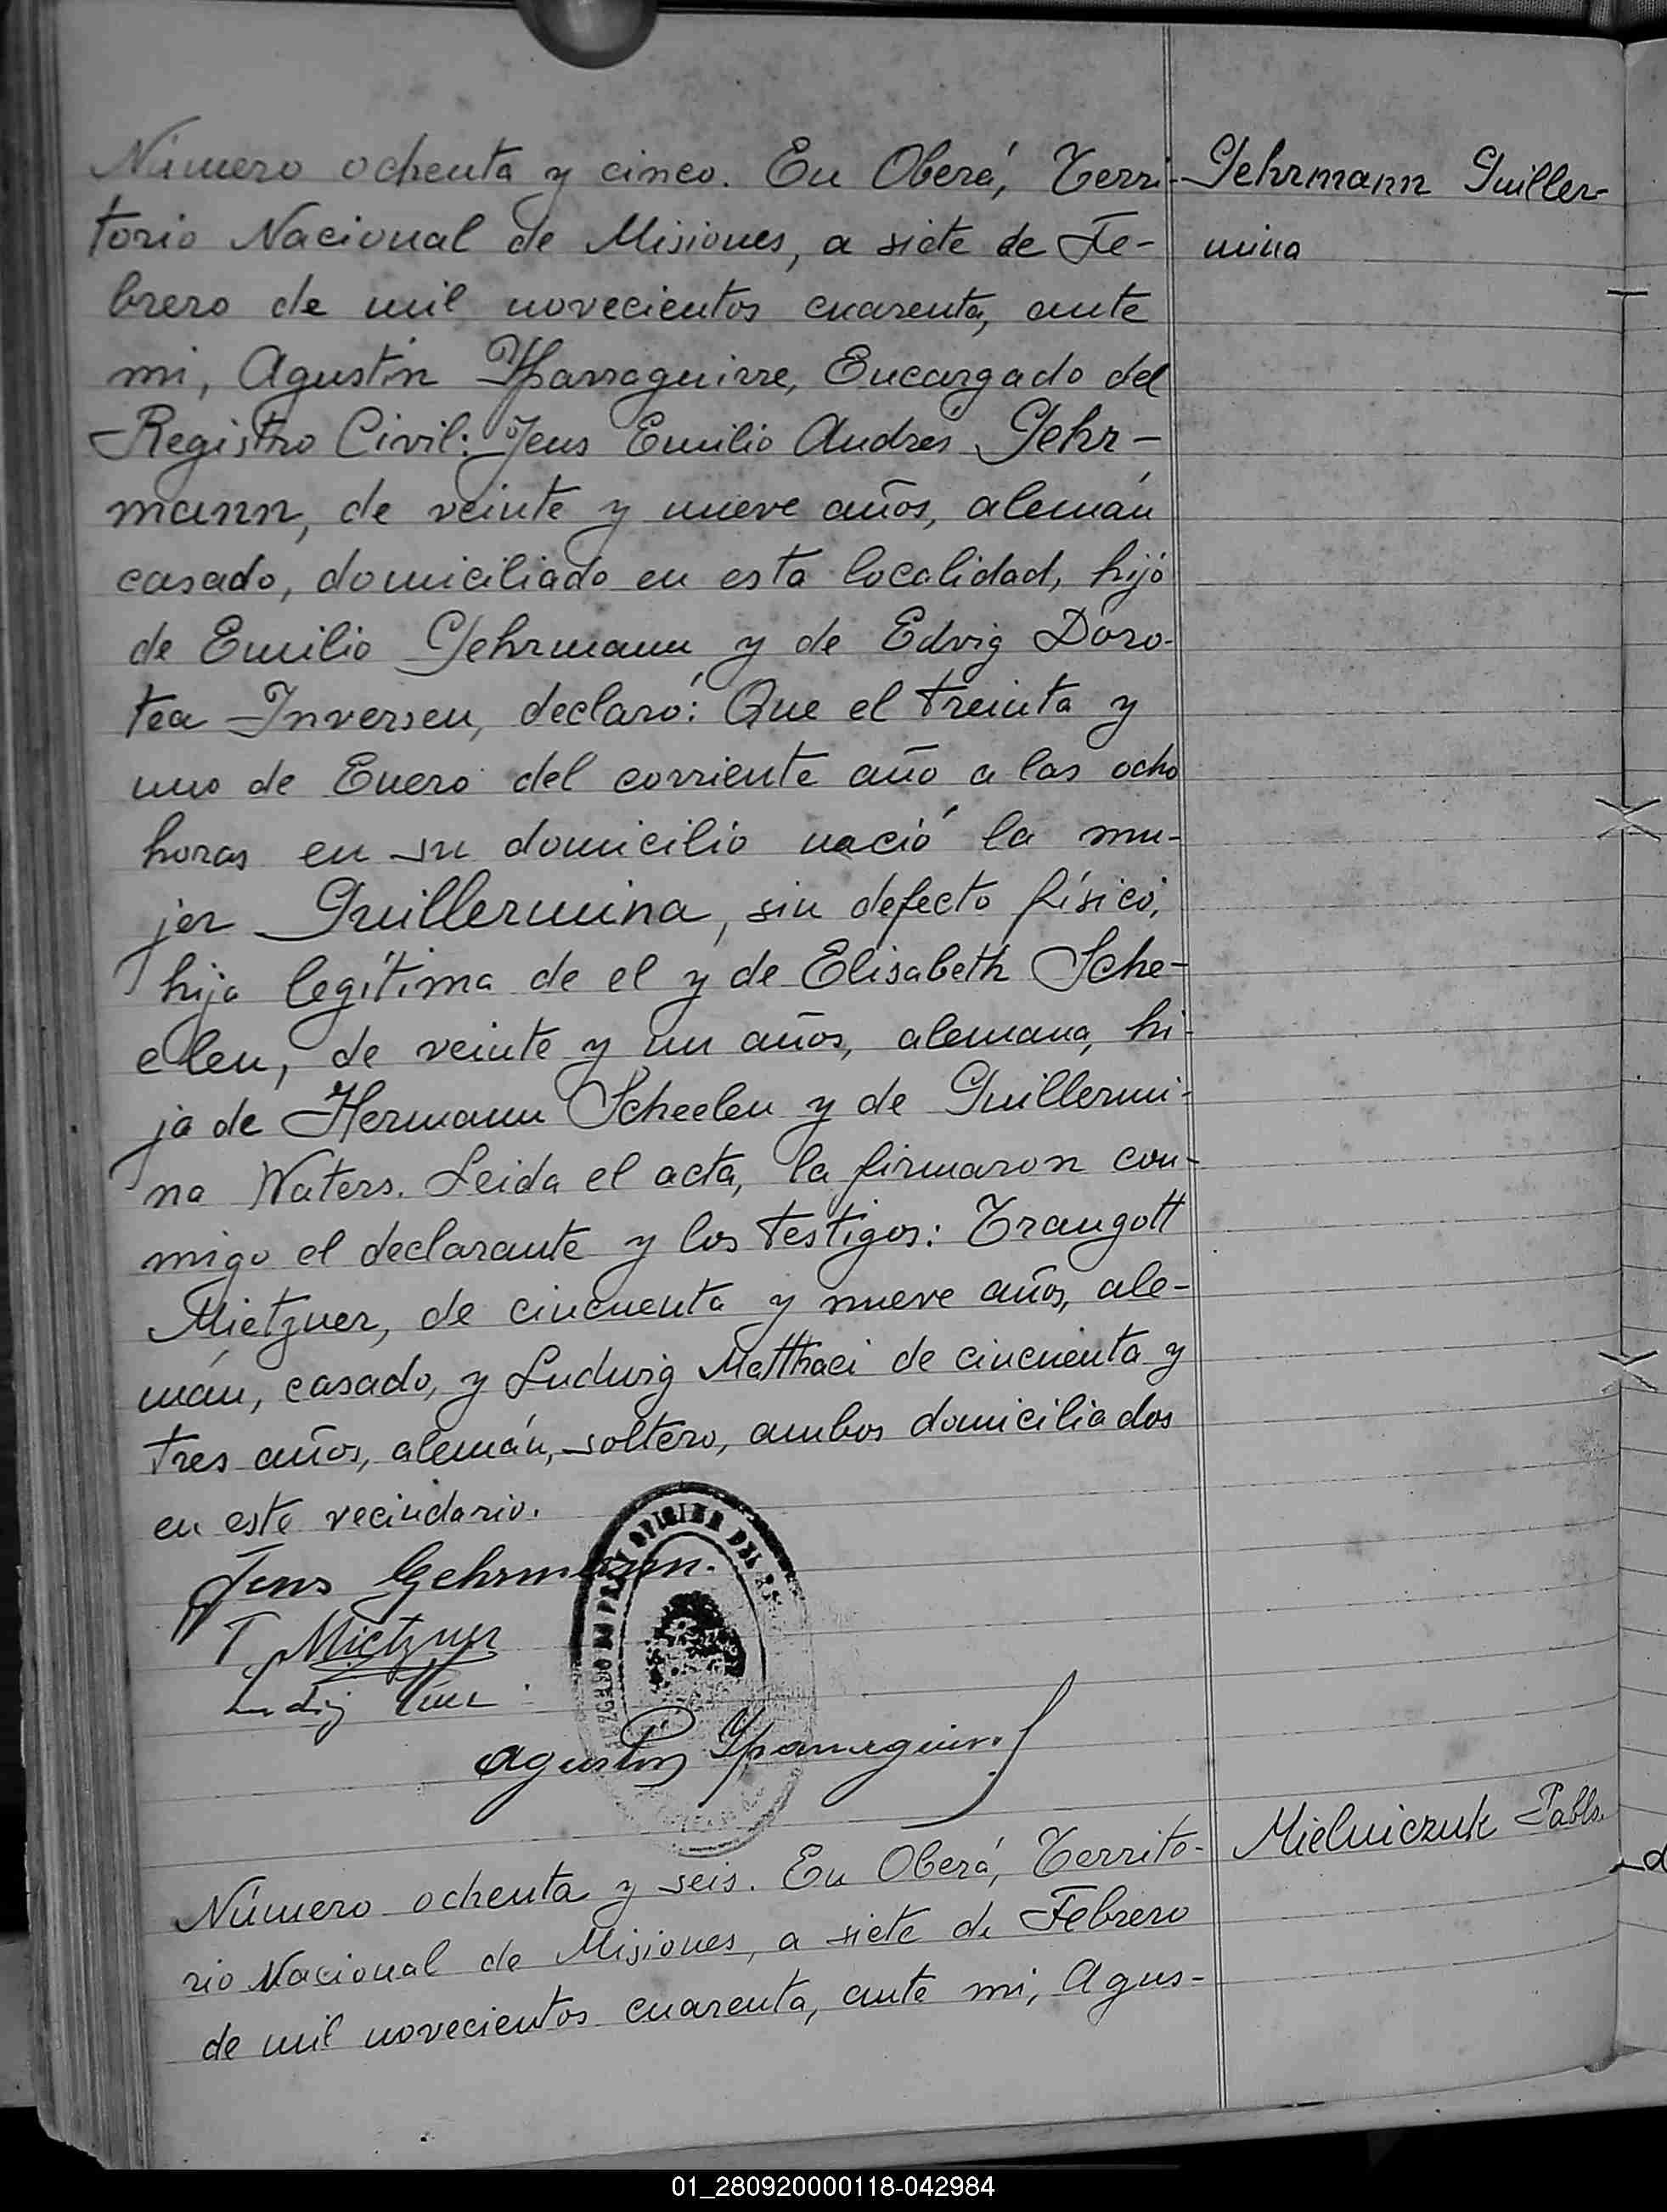 Número ochenta y cinco. En Oberá, Terri-
torio Nacional de Misiones, a siete de Fe-
brero de mil novecientos cuarenta, ante
mi, Agustín Yparraguirre, Encargado del
Registro Civil: Jens Emilio Andrés Gehr-
mann, de veinte y nueve años, alemán
casado, domiciliado en esta localidad, hijo
de Emilio Gehrmann y de Edvig Doro-
tea Inversen, declaró: Que el treinta y
uno de Enero del corriente año a las ocho
horas en su domicilio nació la mu-
jer Guillermina, sin defecto físico,
hija legítima de el y de Elisabeth Sche-
elen, de veinte y un años, alemana, hi-
ja de Hermann Scheelen y de Guillermi-
na Waters. Leida el acta, la firmaron con-
migo el declarante y los testigos: Traugott
Mietzner, de cincuenta y nueve años, ale-
mán, casado, y Ludwig Matthaei de cincuenta y
tres años, alemán, soltero, ambos domiciliados
en este vecindario.
Jens Gehrmann.
T Mietzner
Agustín Yparraguirre
Número ochenta y seis. En Oberá, Territo-
rio Nacional de Misiones, a siete de Febrero
de mil novecientos cuarenta, ante mi, Agus-
Gehrmann Guiller-
mina
Mielniczuk Pablo.
01_280920000118-042984